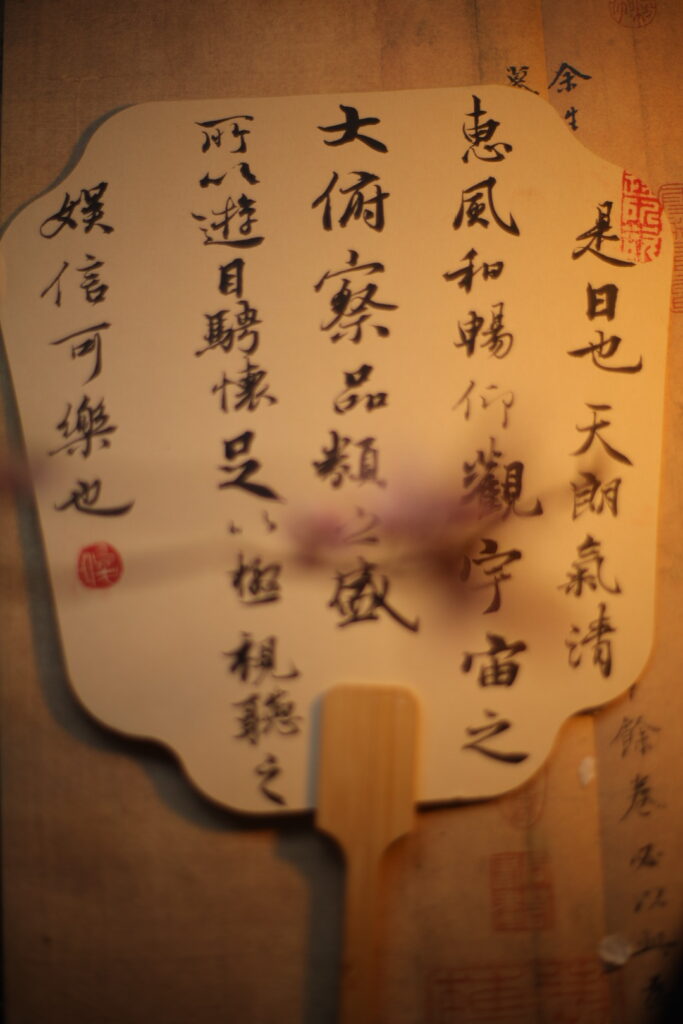 是日也天朗氣清
惠風和暢仰觀宇宙之
大俯察品類之盛
所以遊目騁懷足以極視聽之
娛信可樂也
余生
餘卷必以